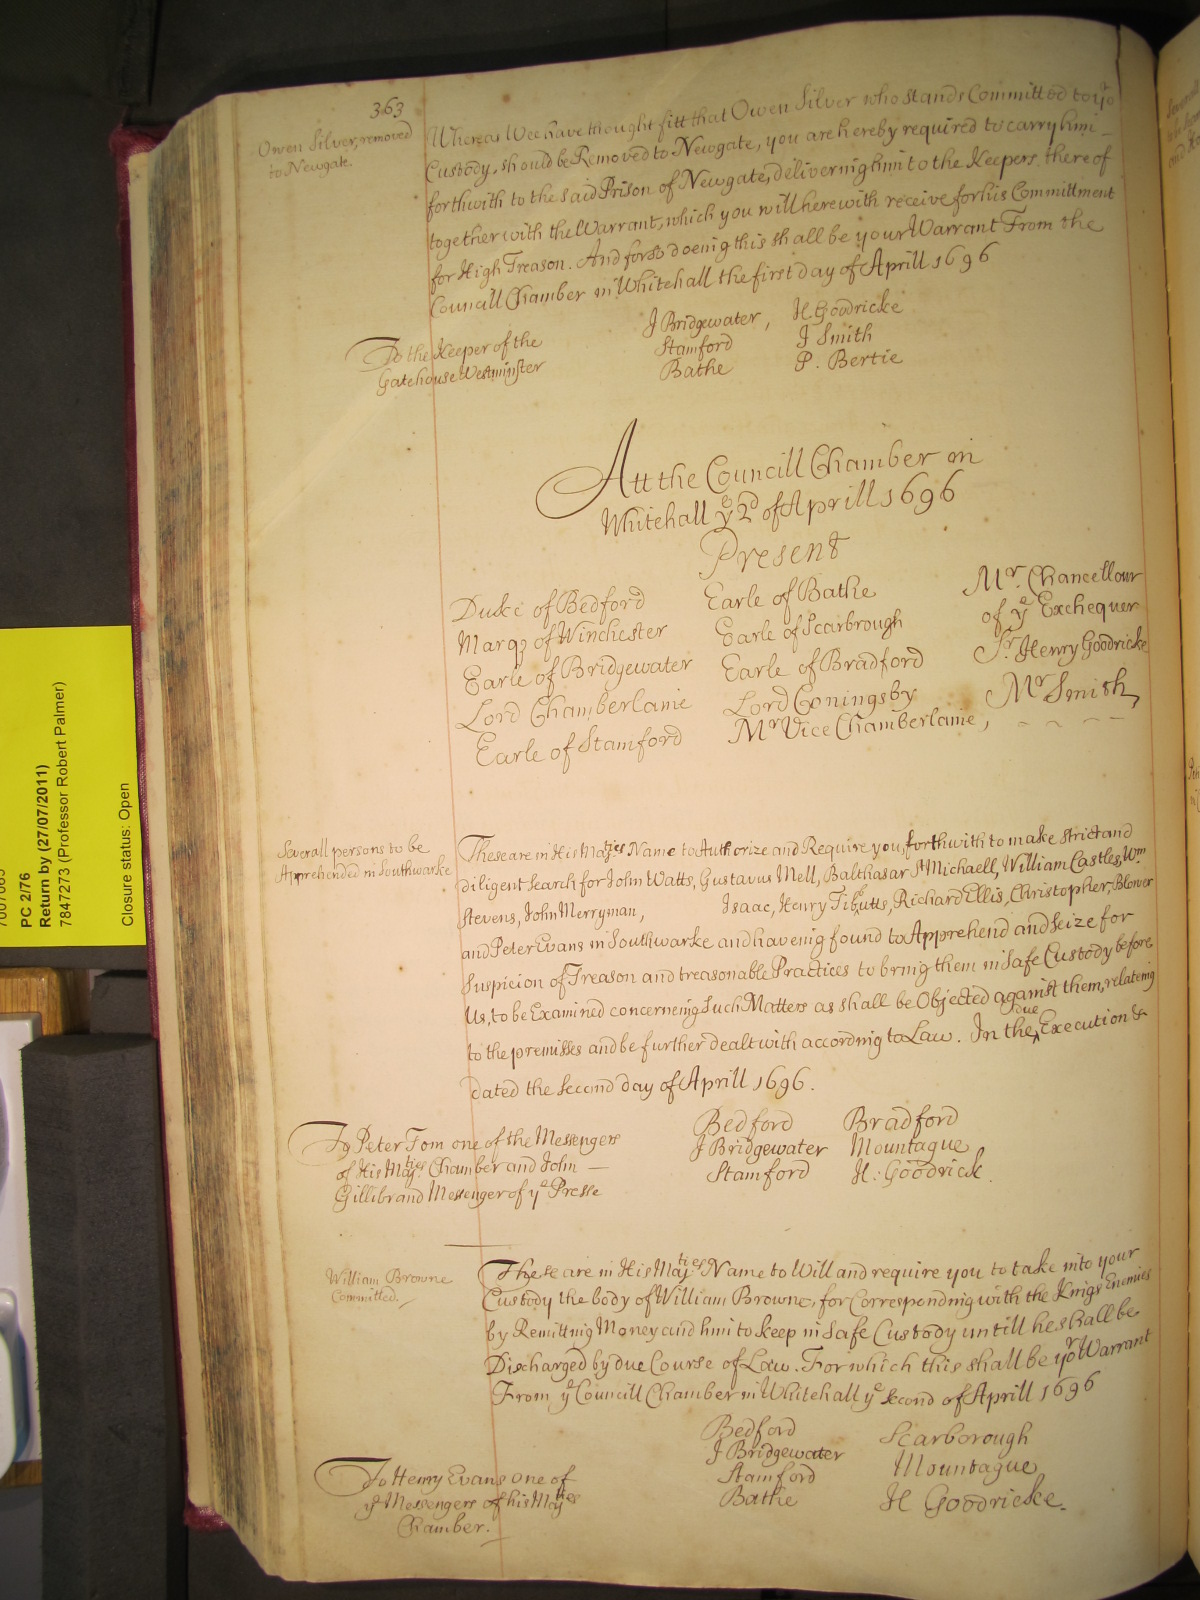 363
Owen Silver, removed
to Newgate.
Whereas Wee have thought fitt that Owen Silver who stands Committed to yor
Custody, should be Removed to Newgate, you are hereby required to carry him
forthwith to the said Prison of Newgate, delivering him to the Keepers there of
together with the Warrant, which you will herewith receive for his Committment
for High Treason. And for so doeing this shall be your Warrant From the
Councill Chamber in Whitehall the first day of Aprill 1696
J Bridgewater, H. Goodricke
Stamford J Smith
Bathe P. Bertie
To the Keeper of the
Gatehouse Westminster
Att the Councill Chamber in
Whitehall ye 2d of Aprill 1696
Present
Duke of Bedford Earle of Bathe Mr. Chancellour
Marqs of Winchester Earle of Scarbrough of ye Exchequer
Earle of Bridgewater Earle of Bradford Sr. Henry Goodricke
Lord Chamberlaine Lord Coningsby Mr Smith,
Earle of Stamford Mr Vice Chamberlaine,
Severall persons to be
Apprehended in Southwarke
These are in His Maties Name to Authorize and Require you, forthwith to make strict and
diligent search for John Watts, Gustavus Mell, Balthasar St Michaell, William Castles, Wm
Stevens, John Merryman, Isaac, Henry Tibbutts, Richard Ellis, Christopher, Blower
and Peter Evans in Southwarke and haveing found to Apprehend and seize for
suspicion of Treason and treasonable Practices to bring them in safe Custody before
Us, to be Examined concerneing such Matters as shall be Objected against them, relateing
to the premisses and be further dealt with according to Law. In the due Execution &
dated the second day of Aprill 1696.
To Peter Tom one of the Messengers
of His Maties Chamber and John
Gillibrand Messenger of ye Presse
Bedford Bradford
J Bridgewater Mountague
Stamford H: Goodrick.
William Browne
Committed.
These are in His Maties Name to Will and require you to take into your
Custody the body of William Browne, for Corresponding with the Kings Enemies
by Remitting Money and him to keep in safe Custody untill he shall be
Discharged by due Course of Law. For which this shall be yor Warrant
From ye Councill Chamber in Whitehall ye second of Aprill 1696
Bedford Scarborough
J Bridgewater Mountague
Stamford H Goodricke.
Bathe
To Henry Evans one of
ye Messengers of his Maties
Chamber.
PC 2/76
Return by (27/07/2011)
7847273 (Professor Robert Palmer)
Closure status: Open